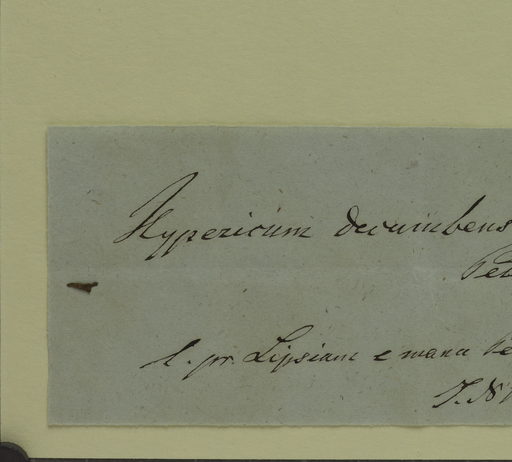 Hypericum decumbens
Pet
l. pr. Lipsiam e manu Pe
J. N